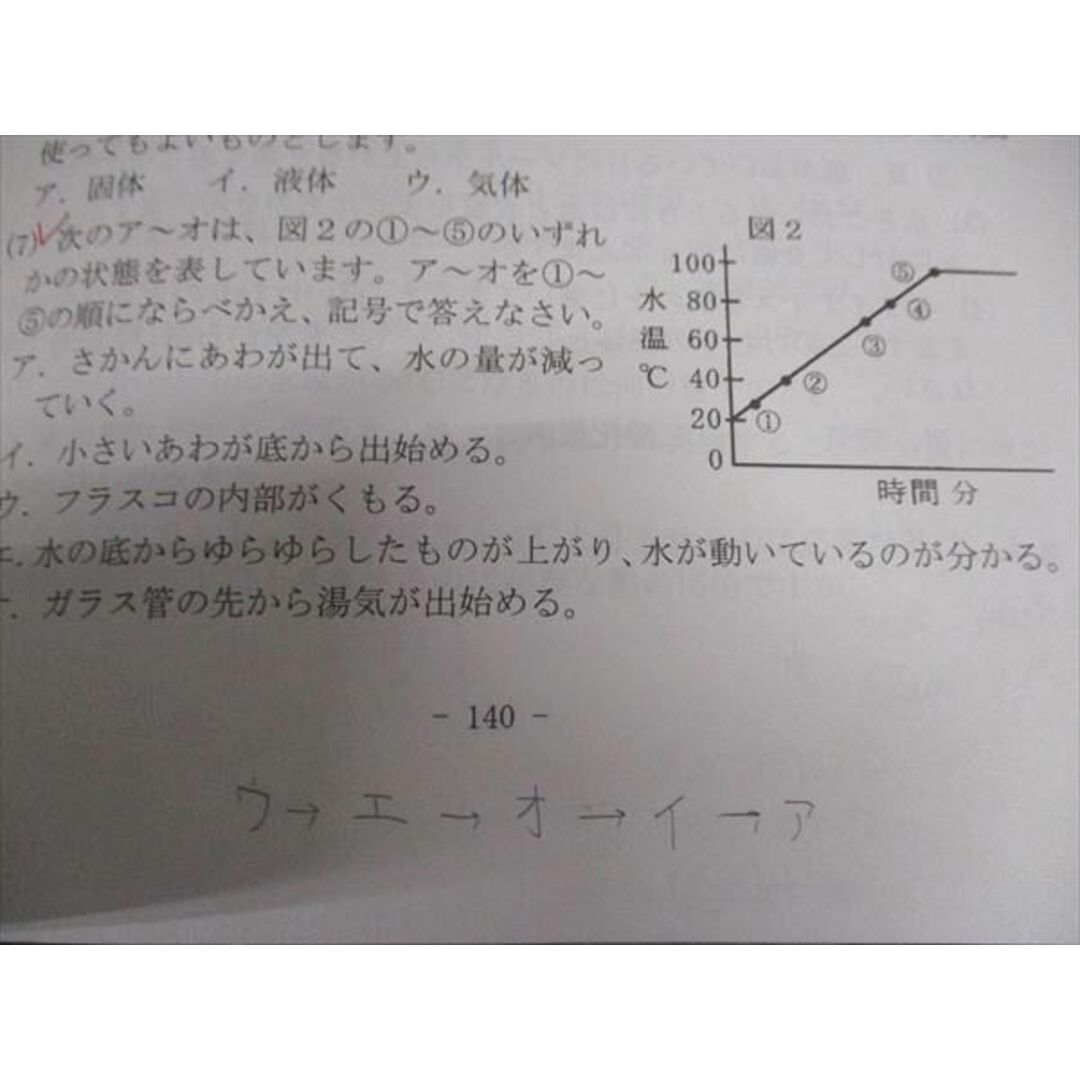 使ってもよいものとします。
ア．固体　イ．液体　ウ．気体
(7) 次のア～オは、図２の①～⑤のいずれ
かの状態を表しています。ア～オを①～
⑤の順にならべかえ、記号で答えなさい。
ア．さかんにあわが出て、水の量が減っ
ていく。
イ．小さいあわが底から出始める。
ウ．フラスコの内部がくもる。
エ．水の底からゆらゆらしたものが上がり、水が動いているのが分かる。
オ．ガラス管の先から湯気が出始める。
図２
水温℃
100
80
60
40
20
0
⑤
④
③
②
①
時間 分
- 140 -
ウ→エ→オ→イ→ア